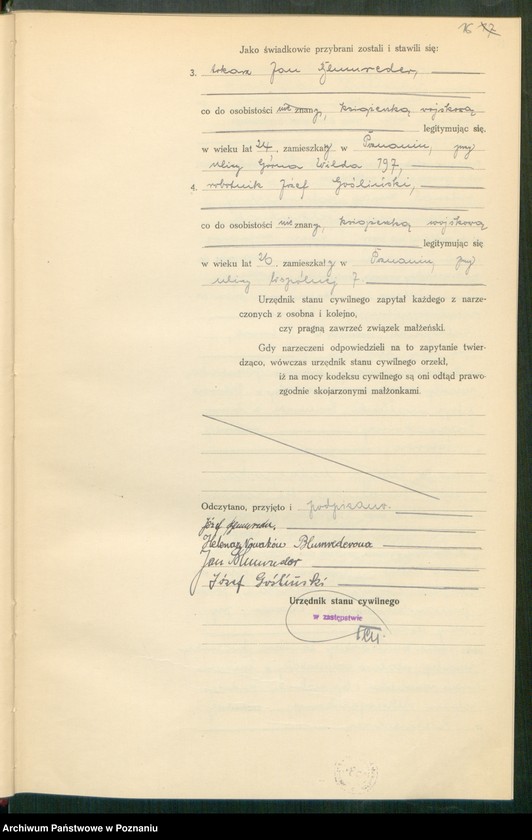 16
Jako świadkowie przybrani zostali i stawili się:
3. tokarz Jan Blumreder,
co do osobistości nie znany, książeczką wojskową
legitymując się,
w wieku lat 24, zamieszkały w Poznaniu, przy
ulicy Górna Wilda 197,
4. robotnik Józef Gośliński,
co do osobistości nie znany, książeczką wojskową
legitymując się
w wieku lat 26, zamieszkały w Poznaniu, przy
ulicy Wspólnej 7.
Urzędnik stanu cywilnego zapytał każdego z narze-
czonych z osobna i kolejno,
czy pragną zawrzeć związek małżeński.
Gdy narzeczeni odpowiedzieli na to zapytanie twier-
dząco, wówczas urzędnik stanu cywilnego orzekł,
iż na mocy kodeksu cywilnego są oni odtąd prawo-
zgodnie skojarzonymi małżonkami.
Odczytano, przyjęto i podpisano.
Józef Blumreder.
Helena z Nowaków Blumrederowa
Jan Blumreder
Józef Gośliński
Urzędnik stanu cywilnego
w zastępstwie
Archiwum Państwowe w Poznaniu